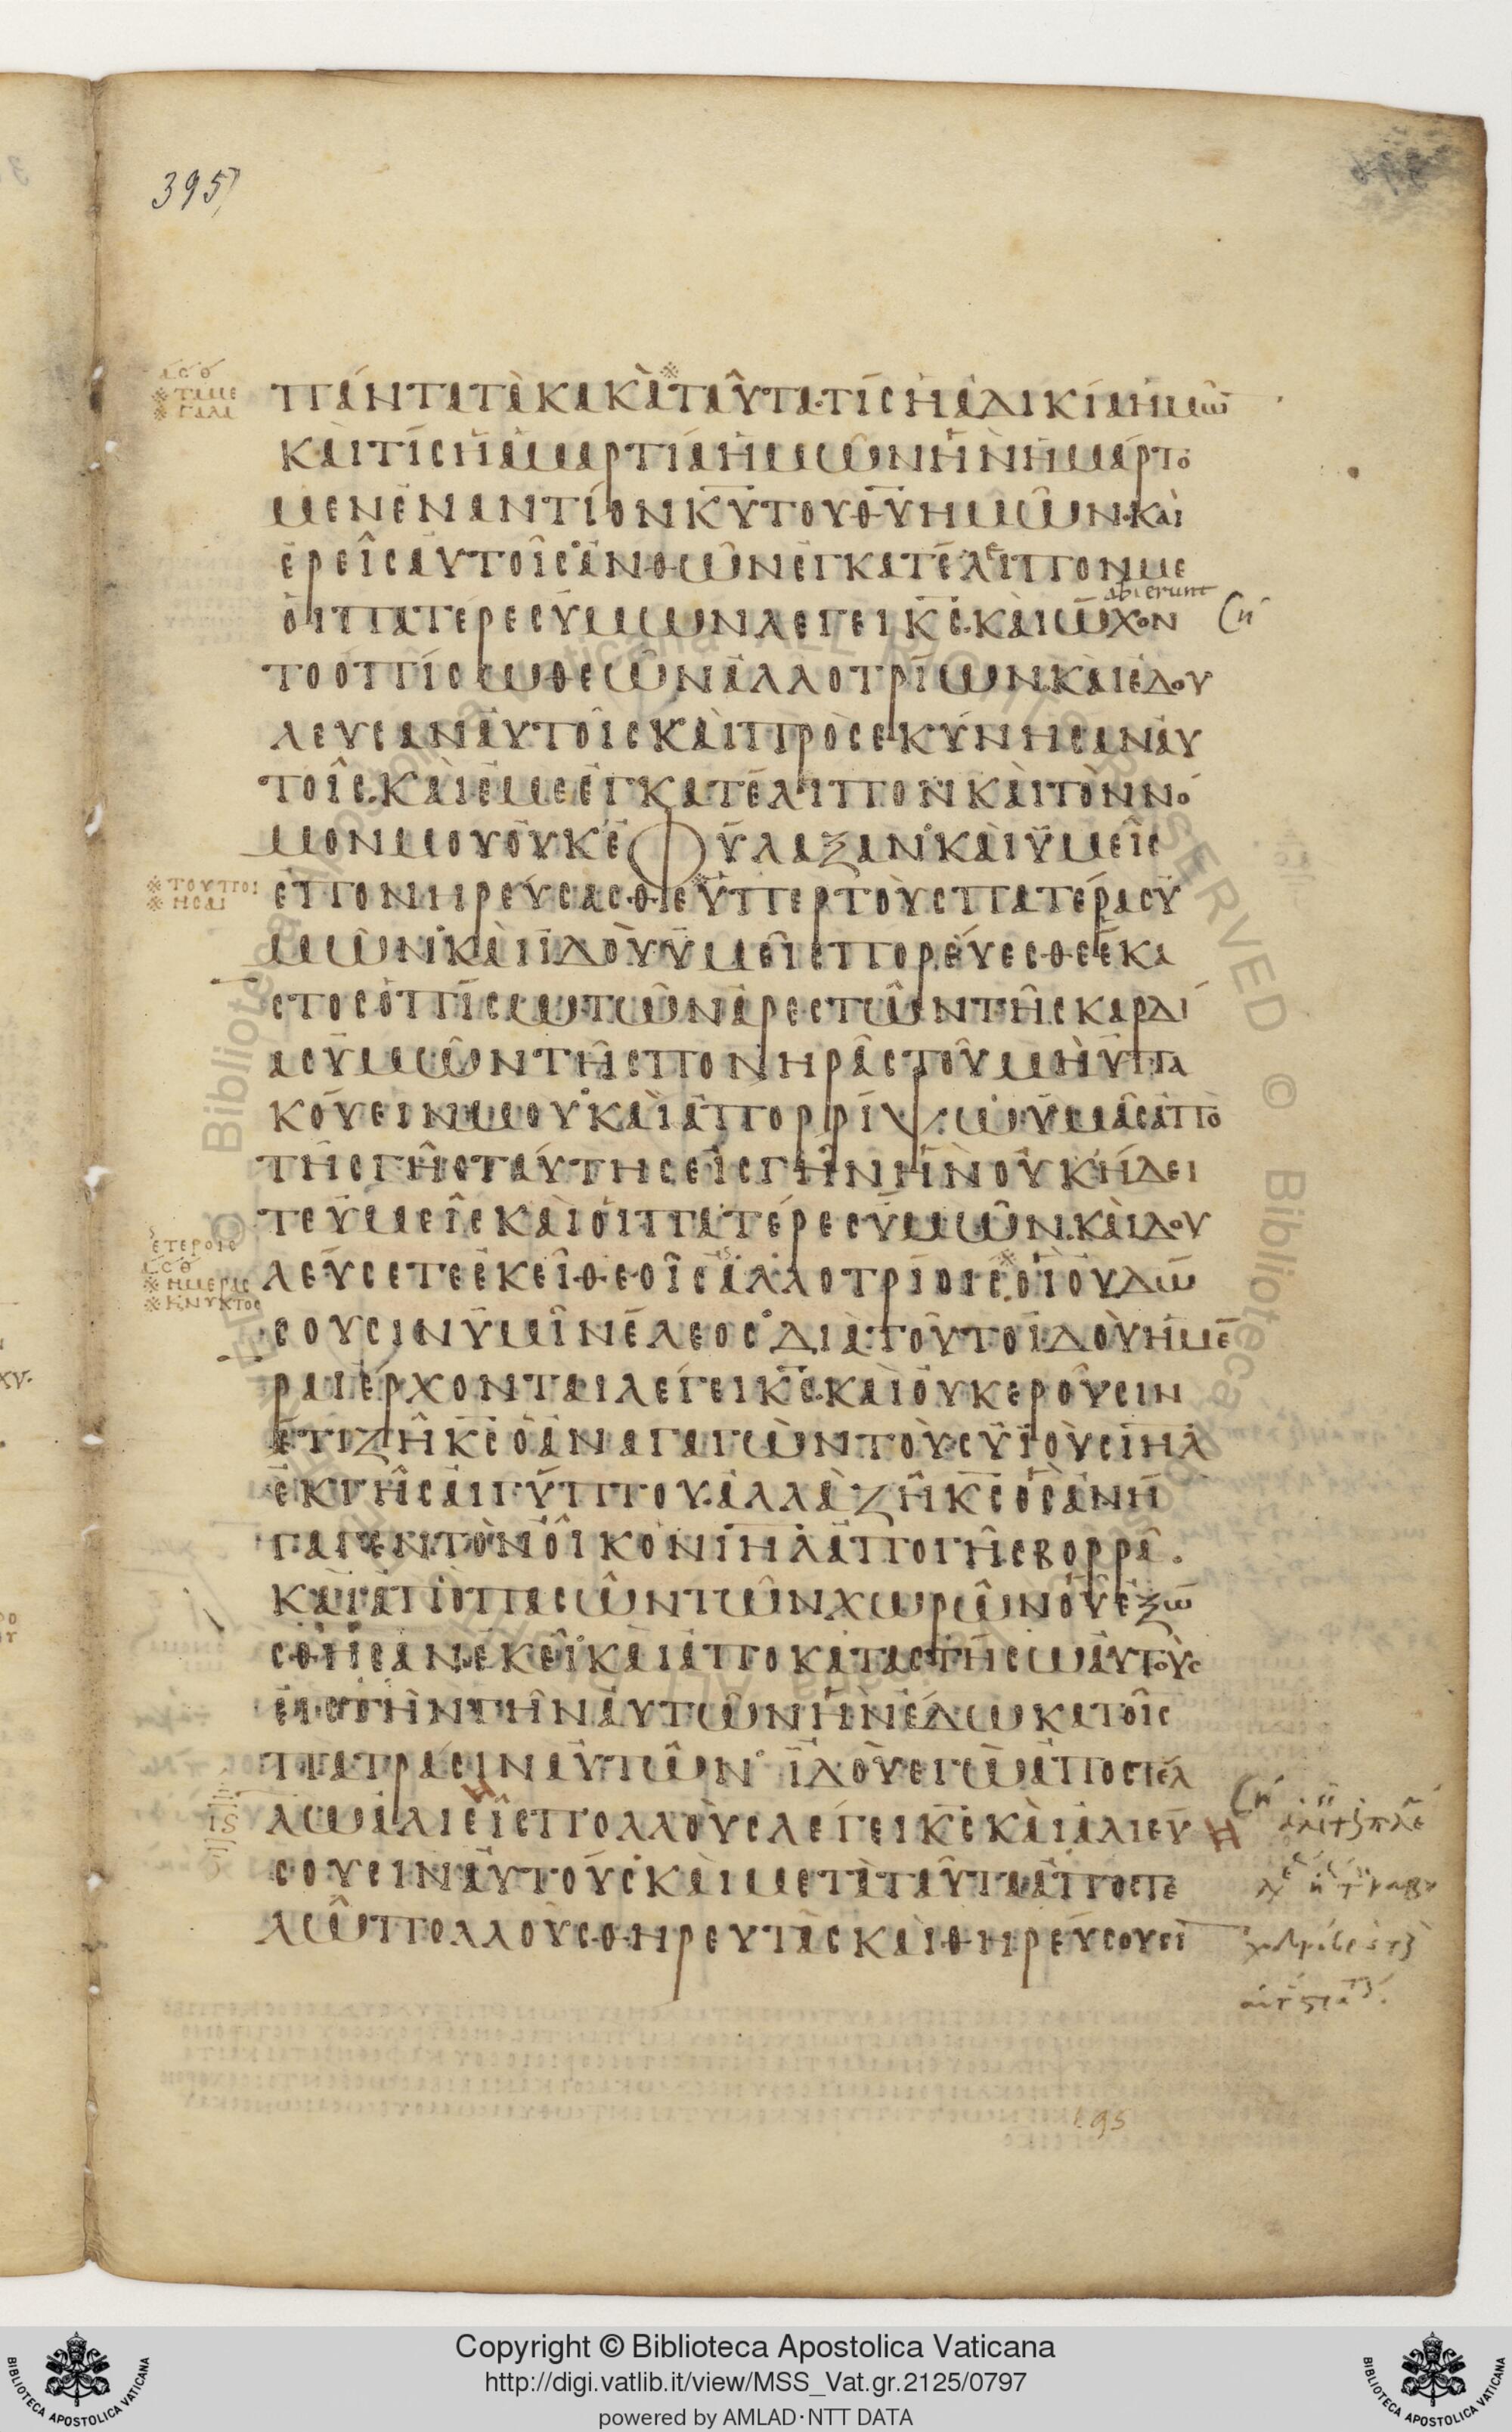 395
ΠΆΝΤΑΤᾺΚΑΚᾺ※ΤΑΥ͂ΤΑ·ΤΊΣΗἈΔΙΚΊΑΗΜΩ̅
ΚΑῚΤΊΣΗἉΜΑΡΤΊΑΗΜΩΝΗΝΗΜΆΡΤΟ
ΜΕΝΕΝΑΝΤΊΟΝΚ̅Υ̅ΤΟΥΘ̅Υ̅ΗΜΩ͂Ν·ΚΑῚ
ἘΡΕΙ͂ΣΑΥΤΟΙ͂ΣἈΝΘΩ͂ΝἘΓΚΑΤΈΛΙΠΟΝΜΕ
abierunt
ὉΙΠΑΤΈΡΕΣΥΜΩΝΛΕΓΕΙΚ̅Σ̅·ΚΑῚΩΧΟΝ
ΤΟΟΠΊΣΩΘΕΩ͂ΝἈΛΛΟΤΡΊΩΝ·ΚΑΙΕΔΟΥ
ΛΕΥΣΑΝἈΥΤΟΙ͂ΣΚΑῚΠΡΟΣΕΚΎΝΗΣΑΝἈΥ
ΤΟΙ͂Σ·ΚΑῚἘΜΕἘΓΚΑΤΈΛΙΠΟΝΚΑῚΤῸΝΝΌ
ΜΟΝΜΟΥΟΥΚἘΦΎΛΑΞΑΝ·ΚΑῚΫΜΕΙ͂Σ
※ΤΟΥΠΟΙ
※ΗΣΑΙ
ΕΠΟΝΗΡΕΎΣΑΣΘΕ※ΥΠΕΡΤΟῪΣΠΑΤΈΡΑΣΫ
ΜΩ͂Ν·ΚΑῚΪΔΟῪΫΜΕΙ͂ΣΠΟΡΕΎΕΣΘΕἝΚΑ
ΣΤΟΣὈΠΊΣΩΤΩ͂ΝἈΡΕΣΤΩ͂ΝΤΗ͂ΣΚΑΡΔΊ
ΑΣΥΜΩ͂ΝΤΗ͂ΣΠΟΝΗΡΑ͂ΣΤΟΥ͂ΜῊΥΠΑ
ΚΟΎΕΙΝΜΟΥ·ΚΑῚἈΠΟΡΡΊΨΩΥΜΑ͂ΣἈΠῸ
ΤΗ͂ΣΓΗ͂ΣΤΑΎΤΗΣΕΙΣΓΗ͂ΝΗΝΟΥΚΗΔΕΙ
ΤΕΥΜΕΙ͂ΣΚΑῚὉΙΠΑΤΈΡΕΣΥΜΩ͂Ν·ΚΑῚΔΟΥ
ΕΤΕΡΟΙΣ
※ΗΜΕΡΑΣ
※ΚΝΥΚΤΟΣ
ΛΕΎΣΕΤΕἘΚΕΙ͂ΘΕΟΙ͂ΣἈΛΛΟΤΡΊΟΙΣ※ΟΙΟΥΔΩ
ΣΟΥΣΙΝΥΜΙ͂ΝἜΛΕΟΣ·ΔΙᾺΤΟΥ͂ΤΟΪΔΟῪΗΜΕ
ΡΑΙἘΡΧΟΝΤΑΙΛΕΓΕΙΚ̅Σ̅·ΚΑῚΟΥΚΕΡΟΥ͂ΣΙΝ
ἜΤΙΖΗ͂Κ̅Σ̅ὉἈΝΑΓΑΓῺΝΤΟῪΣΥΙΟῪΣΙ̅Η̅Λ̅
ἘΚΓΗ͂ΣΑΙΓΎΠΤΟΥ·ἈΛΛᾺΖΗ͂Κ̅Σ̅ὉΣἈΝΗ
ΓΑΓΕΝΤῸΝΟΙ͂ΚΟΝΙ̅Η̅Λ̅ἈΠΟΓΗ͂ΣΒΟΡΡΑ͂·
ΚΑῚἈΠῸΠΑΣΩ͂ΝΤΩ͂ΝΧΩΡΩ͂ΝΟΥἘΞΩ
ΣΘΗΣΑΝἘΚΕΙ͂·ΚΑῚἈΠΟΚΑΤΑΣΤΉΣΩἈΥΤΟῪΣ
ΕΙΣΤῊΝΓΗ͂ΝἈΥΤΩ͂ΝΗΝΕΔΩΚΑΤΟΙ͂Σ
ΠΑΤΡΆΣΙΝΑΥΤΩ͂Ν·ΪΔΟῪΕΓΩἈΠΟΣΤΕΛ
ΛΩἉΛΙΕΙΣΠΟΛΛΟῪΣΛΕΓΕΙΚ̅Σ̅ΚΑῚἉΛΙΕΥ
ΣΟΥΣΙΝΑΥΤΟΎΣ·ΚΑῚΜΕΤᾺΤΑΥ͂ΤΑἈΠΟΣΤΕ
ΛΩ͂ΠΟΛΛΟῪΣΘΗΡΕΥΤᾺΣΚΑῚΘΗΡΕΎΣΟΥΣΙ̅
Copyright © Biblioteca Apostolica Vaticana
http://digi.vatlib.it/view/MSS_Vat.gr.2125/0797
powered by AMLAD·NTT DATA